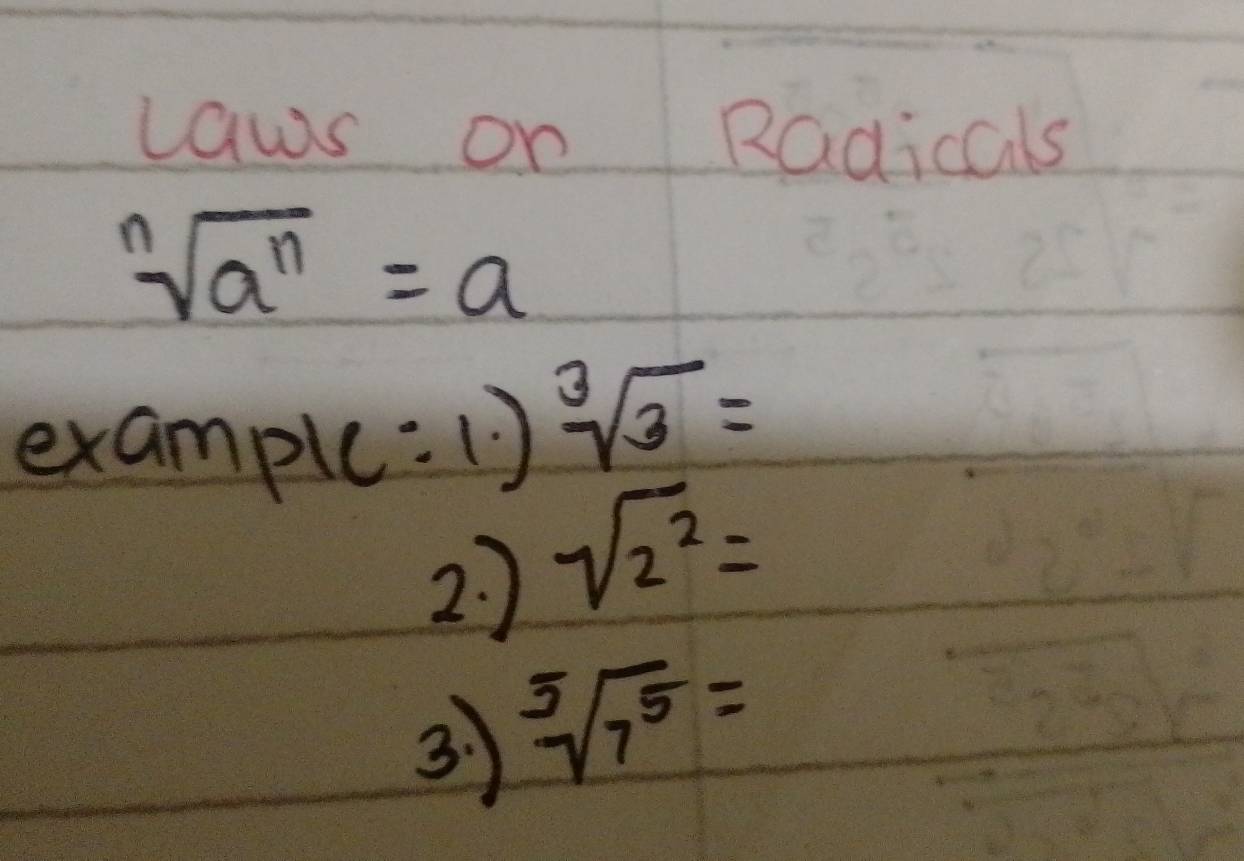 Laws on Radicals
ⁿ√aⁿ = a
example: 1.) ³√3 =
2.) √2² =
3.) ⁵√7⁵ =